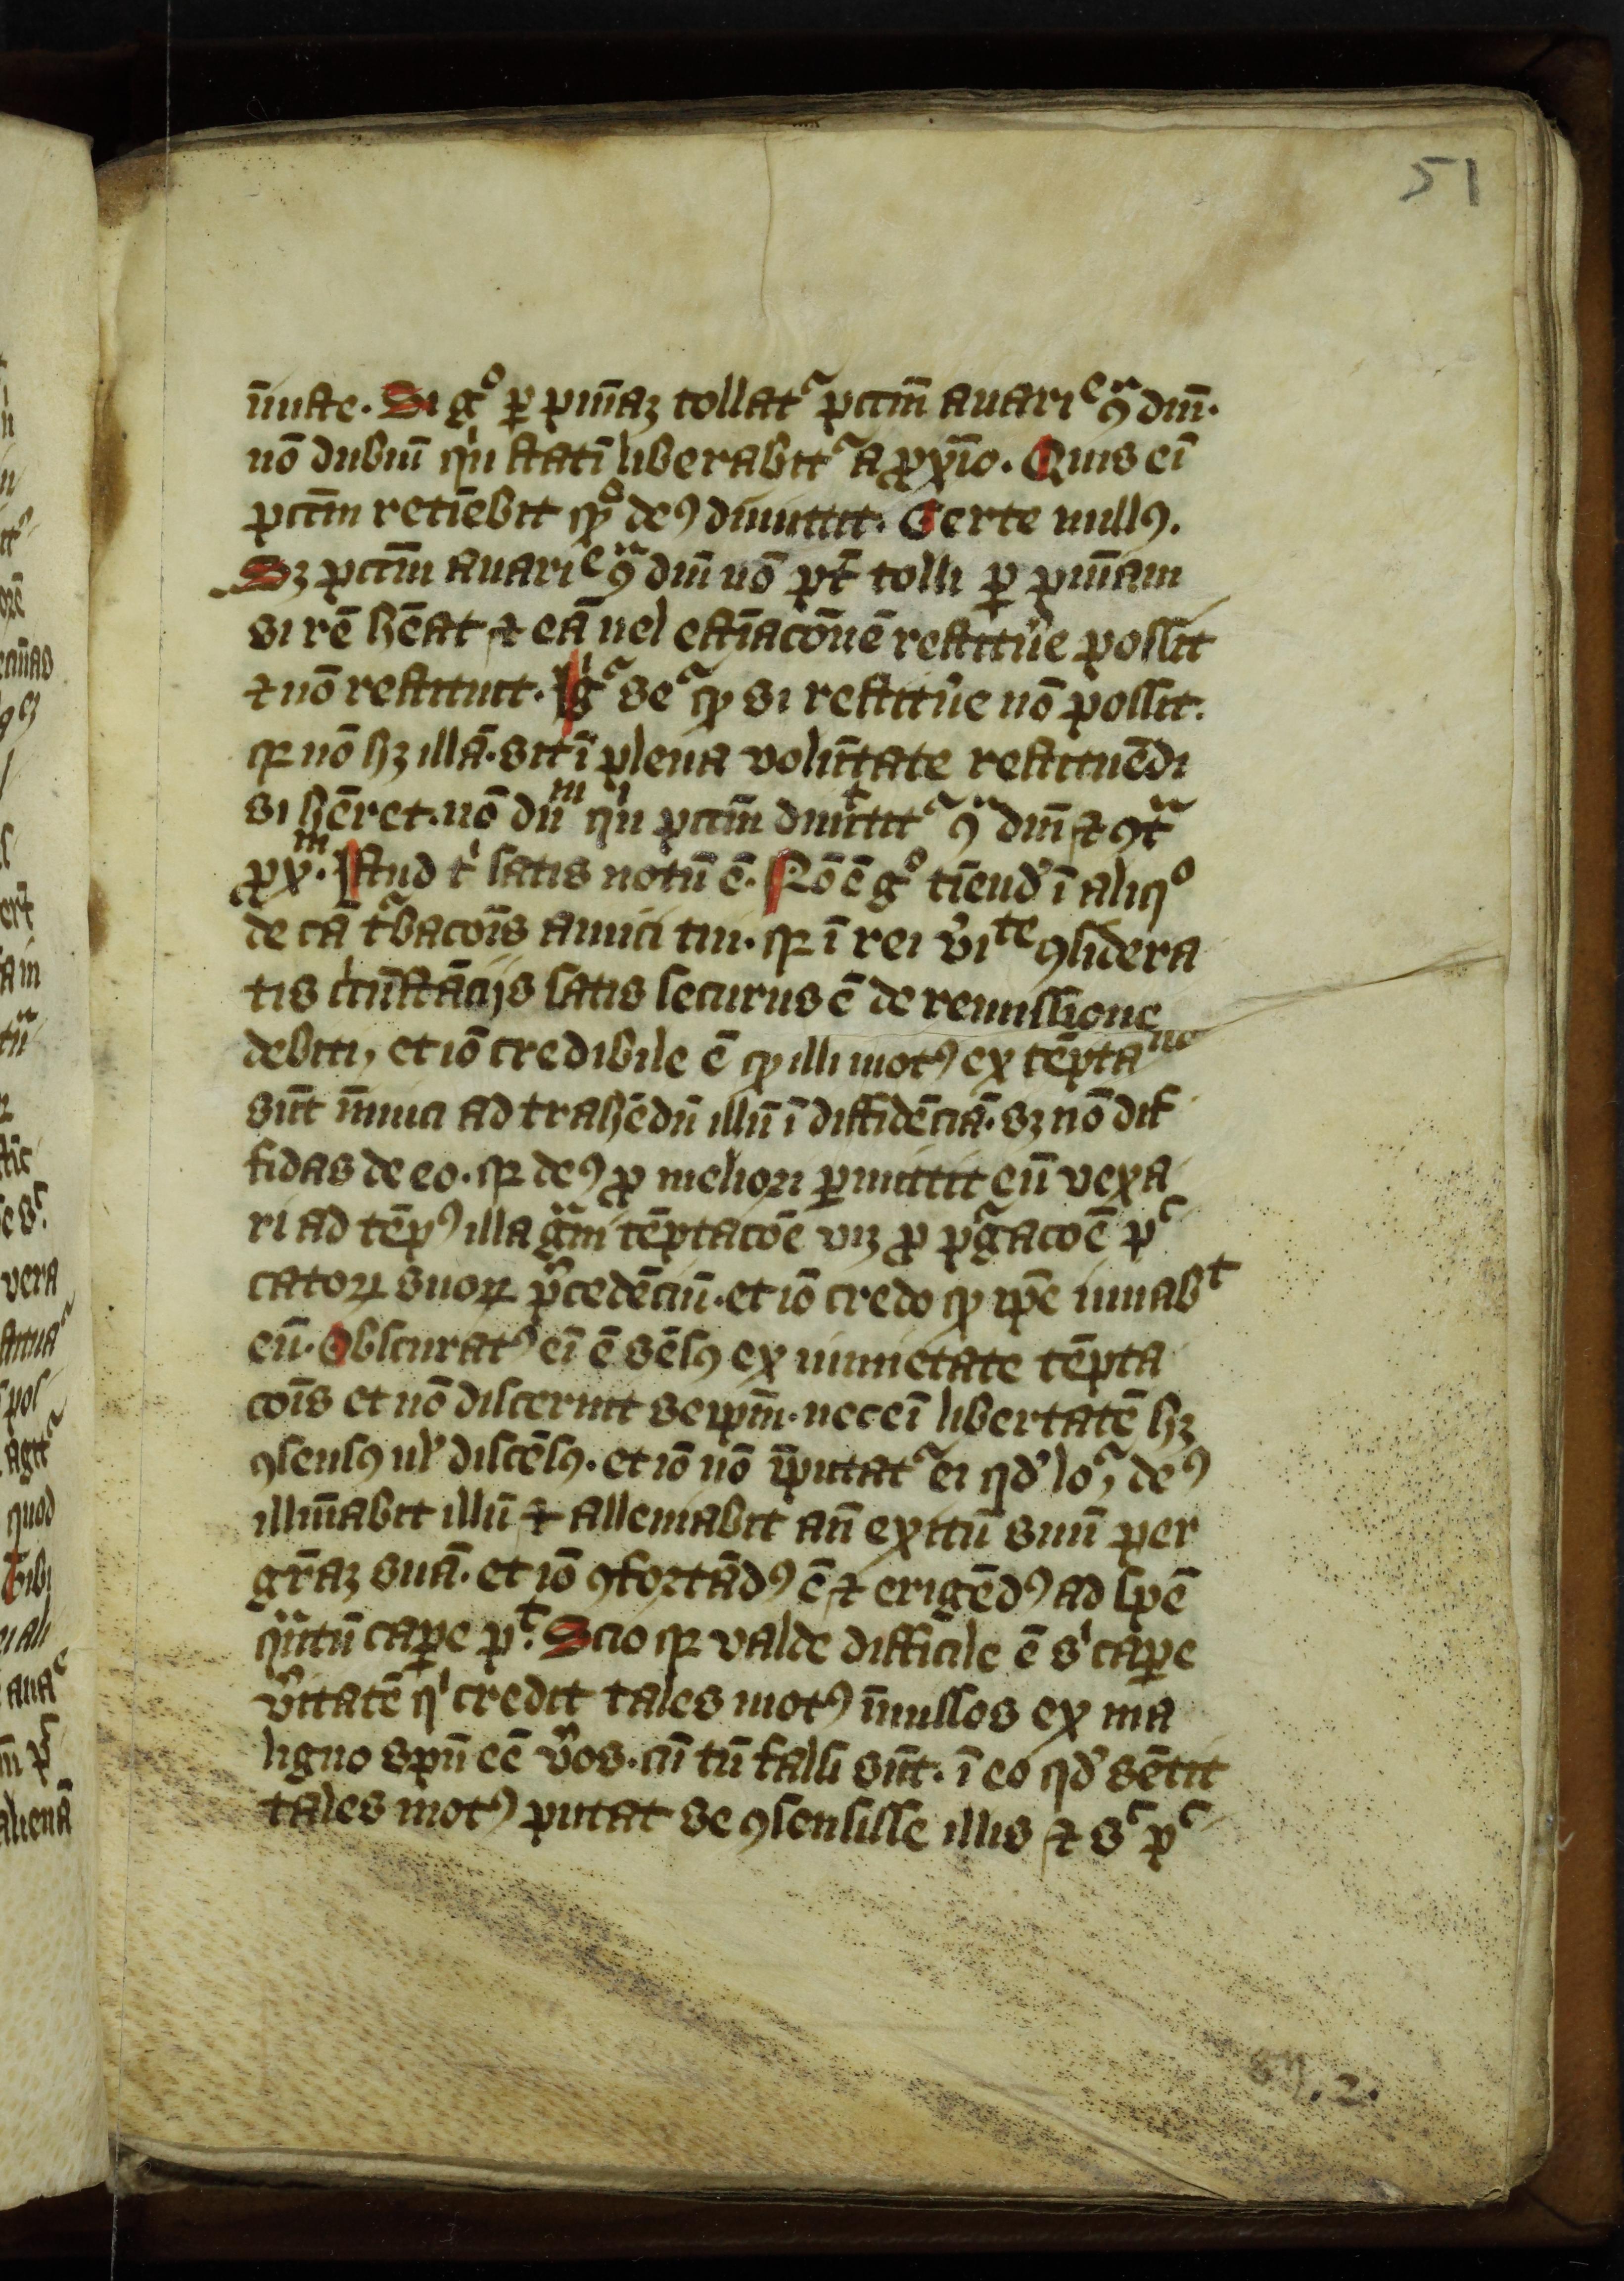 51
īiuste. Si gͦ ꝑ pn̄iaꝫ tollatᷣ pctm̄ auariᵉ ꝯᷓ dm̄.
nō dubiū qͥn statī liberabitᷣ a ꝓxīo. Quis eī
pctm̄ retīebit qͦ deꝰ dimittit. Certe nullꝰ.
Sꝫ pctm̄ auariᵉ ꝯᷓ dm̄ nō pt̄ tolli ꝑ pn̄iam
si rē hēat ⁊ eā uel estīacōnē restitue᷒ possit
⁊ nō restituit. Igᷣ seᷣ ꝙ si restitue᷒ nō possit.
qꝛ nō hꝫ illā. sit ī plena volūtate restituēdi
si hēret. nō duᵐ qͥn pctm̄ dimittitᷣ ꝯᷓ dm̄ ⁊ ꝯtᷓ
ꝓxᵐ. Istud tͥ satis notū ē. Nō ē gͦ tīend᷒ ī aliqͦ
de cā tᷓbacōīs amici tui. qꝛ ī rei v᷒iᵗᵉ ꝯsidera
tis cͥcūstācijs satis securus ē de remissione
debiti, et iō credibile ē ꝙ illi motꝰ ex tēptaⁿᵉ
sūt īmici ad trahēdū illū ī diffidēciā. sꝫ nō dif
fidas de eo. qꝛ deꝰ ꝓ meliori ꝑmittit eū vexa
ri ad tēpꝰ illa gᷓui tēptacōe vꝫ ꝓ pᷣgacōe pᶜ
catoꝝ suoꝝ p᷒cedēciū. et iō credo ꝙ ip̄e iuuabᵗ
eū. Obscuratꝰ eī ē sēsꝰ ex nimietate tēpta
cōīs et nō discernit seip̄m. nec eī libertatē hꝫ
ꝯsensꝰ ul᷒ discēsꝰ. et iō nō īputatᷣ ei qd᷒ loᷣ, deꝰ
illūīabit illū ⁊ alleuiabit an̄ exitū suū per
gr̄aꝫ suā. et iō ꝯfortādꝰ ē ⁊ erigēdꝰ ad spē
qᷓntū cape᷒ pᵗ. Scio qꝛ valde difficile ē sͥ cape᷒
v᷒itatē qͥ credit tales motꝰ īmissos ex ma
ligno spū eē v᷒os. cū tn̄ falsi sūt. ī eo qd᷒ sētit
tales motꝰ putat se ꝯsensisse illis ⁊ sᶜ pᶜ
.2.